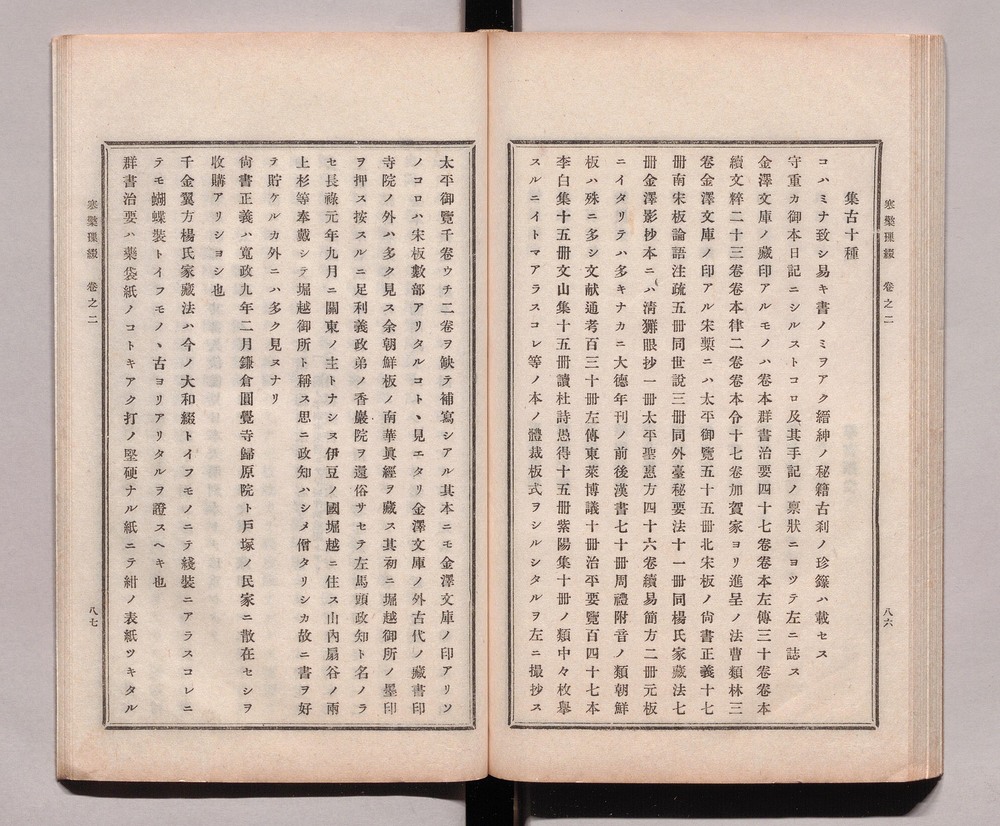 寒檠璅綴 卷之二
八六
集古十種
コハミナ致シ易キ書ノミヲアク縉紳ノ秘籍古刹ノ珍籙ハ載セス
守重カ御本日記ニシルストコロ及其手記ノ稟狀ニヨツテ左ニ誌ス
金澤文庫ノ藏印アルモノハ卷本群書治要四十七卷卷本左傳三十卷卷本
續文粹二十三卷卷本律二卷卷本令十七卷加賀家ヨリ進呈ノ法曹類林三
卷金澤文庫ノ印アル宋槧ニハ太平御覽五十五冊北宋板ノ尙書正義十七
冊南宋板論語注疏五冊同世說三冊同外臺秘要法十一冊同楊氏家藏法七
冊金澤影抄本ニハ淸獬眼抄一冊太平聖惠方四十六卷續易簡方二冊元板
ニイタリテハ多キナカニ大德年刊ノ前後漢書七十冊周禮附音ノ類朝鮮
板ハ殊ニ多シ文献通考百三十冊左傳東萊博議十冊治平要覽百四十七本
李白集十五冊文山集十五冊讀杜詩愚得十五冊紫陽集十冊ノ類中々枚擧
スルニイトマアラスコレ等ノ本ノ體裁板式ヲシルシタルヲ左ニ撮抄ス
太平御覽千卷ウチ二卷ヲ缺テ補寫シアル其本ニモ金澤文庫ノ印アリソ
ノコロハ宋板數部アリタルコトヽ見エタリ金澤文庫ノ外古代ノ藏書印
寺院ノ外ハ多ク見ス余朝鮮板ノ南華眞經ヲ藏ス其初ニ堀越御所ノ墨印
ヲ押ス按スルニ足利義政弟ノ香嚴院ヲ還俗サセテ左馬頭政知ト名ノラ
セ長祿元年九月ニ關東ノ主トナシヌ伊豆ノ國堀越ニ住ス山內扇谷ノ兩
上杉等奉戴シテ堀越御所ト稱ス思ニ政知ハシメ僧タリシカ故ニ書ヲ好
テ貯ケルカ外ニハ多ク見ヌナリ
尙書正義ハ寬政九年二月鎌倉圓覺寺歸原院ト戶塚ノ民家ニ散在セシヲ
收購アリシヨシ也
千金翼方楊氏家藏法ハ今ノ大和綴トイフモノニテ綫裝ニアラスコレニ
テモ蝴蝶裝トイフモノヽ古ヨリアリタルヲ證スヘキ也
群書治要ハ藥袋紙ノコトキアク打ノ堅硬ナル紙ニテ紺ノ表紙ツキタル
寒檠璅綴 卷之二
八七